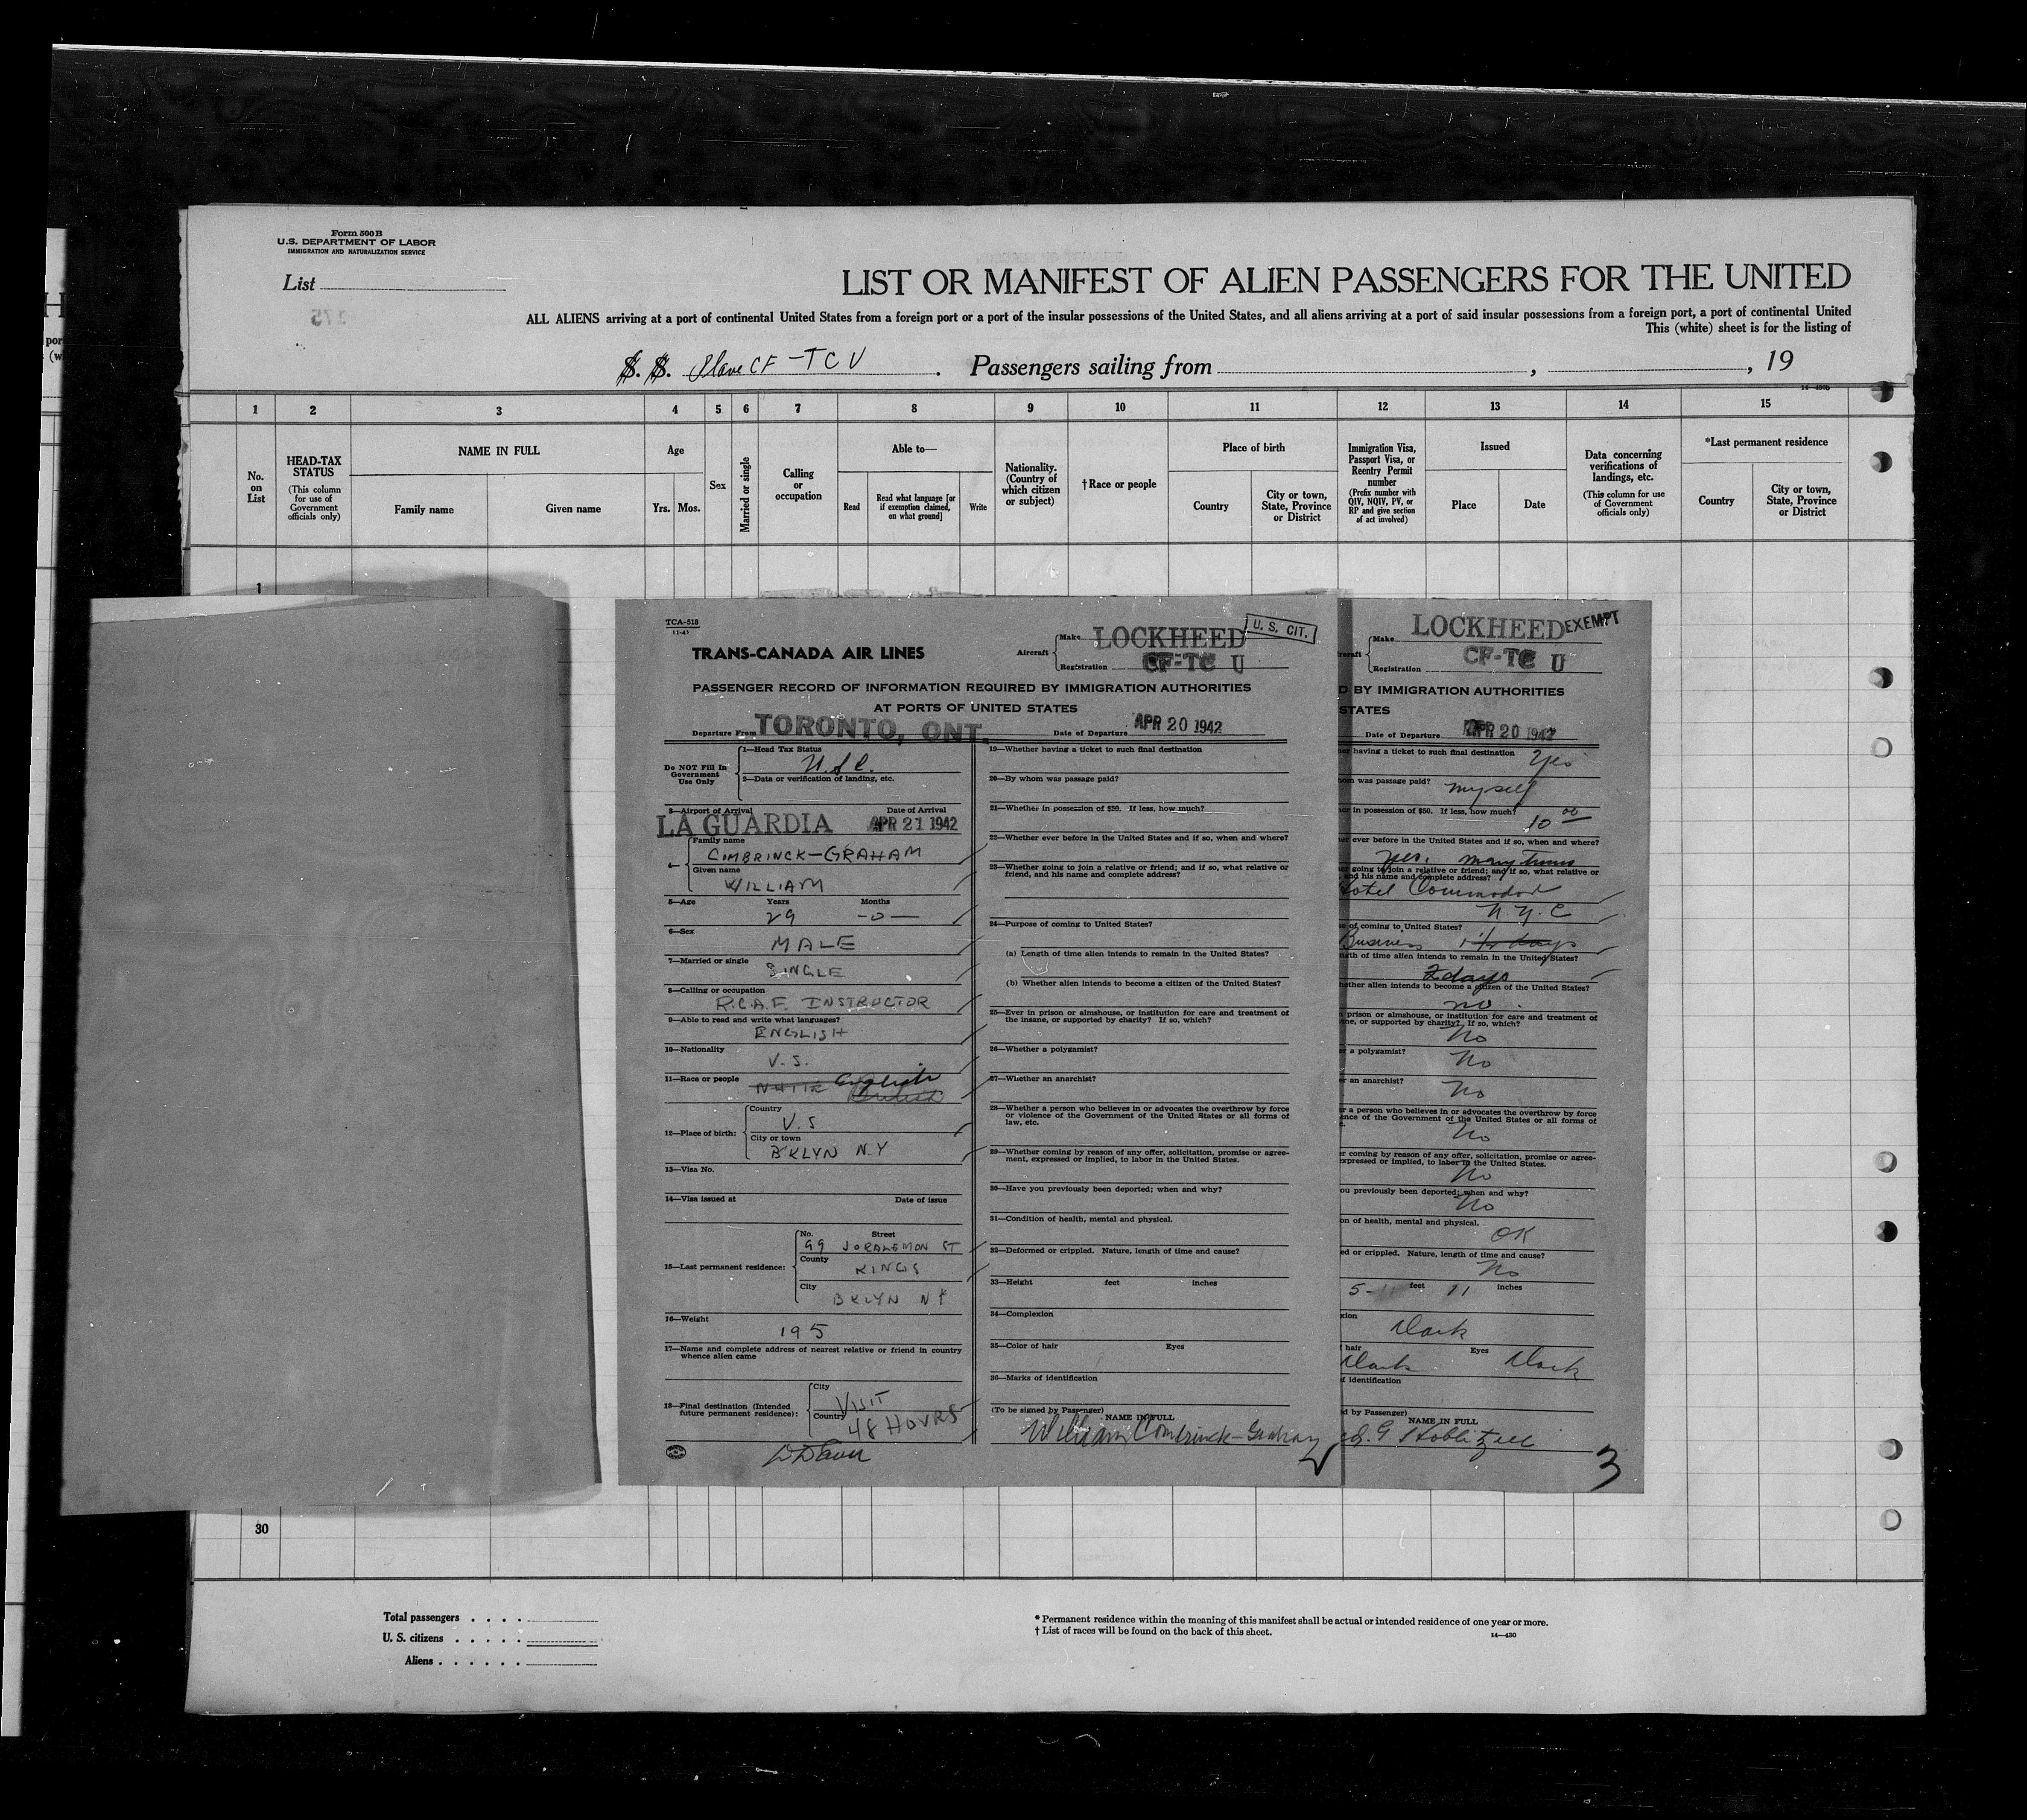 Form 500B
U.S. DEPARTMENT OF LABOR
IMMIGRATION AND NATURALIZATION SERVICE
List
LIST OR MANIFEST OF ALIEN PASSENGERS FOR THE UNITED
ALL ALIENS arriving at a port of continental United States from a foreign port or a port of the insular possessions of the United States, and all aliens arriving at a port of said insular possessions from a foreign port, a port of continental United
This (white) sheet is for the listing of
S. S. Plane CF-TCU. Passengers sailing from , , 19
1 2 3 4 5 6 7 8 9 10 11 12 13 14 15
No. on List
HEAD-TAX STATUS
(This column for use of Government officials only)
NAME IN FULL
Family name Given name
Age
Yrs. Mos.
Sex
Married or single
Calling or occupation
Able to—
Read
Read what language [or if exemption claimed, on what ground]
Write
Nationality. (Country of which citizen or subject)
†Race or people
Place of birth
Country
City or town, State, Province or District
Immigration Visa, Passport Visa, or Reentry Permit number
(Prefix number with QIV, NQIV, PV, or RP and give section of act involved)
Issued
Place Date
Data concerning verifications of landings, etc.
(This column for use of Government officials only)
*Last permanent residence
Country
City or town, State, Province or District
1
TCA-518
11-41
TRANS-CANADA AIR LINES
Aircraft
Make LOCKHEED
U. S. CIT.
Registration CF-TC U
PASSENGER RECORD OF INFORMATION REQUIRED BY IMMIGRATION AUTHORITIES
AT PORTS OF UNITED STATES
Departure From TORONTO, ONT. Date of Departure APR 20 1942
Do NOT Fill In Government Use Only
1—Head Tax Status
2—Data or verification of landing, etc.
3—Airport of Arrival Date of Arrival
LA GUARDIA APR 21 1942
Family name
COMBRINCK-GRAHAM
Given name
WILLIAM
5—Age Years Months
29 -0-
6—Sex
MALE
7—Married or single
SINGLE
8—Calling or occupation
R.C.A.F. INSTRUCTOR
9—Able to read and write what languages?
ENGLISH
10—Nationality
U.S.
11—Race or people
WHITE English British
12—Place of birth:
Country
U.S
City or town
B'KLYN N.Y
13—Visa No.
14—Visa issued at Date of issue
15—Last permanent residence:
No. Street
99 JORALEMON ST
County
KINGS
City
BKLYN NY
16—Weight
195
17—Name and complete address of nearest relative or friend in country whence alien came
18—Final destination (Intended future permanent residence):
City
VISIT
Country
48 HOURS
19—Whether having a ticket to such final destination
20—By whom was passage paid?
21—Whether in possession of $50. If less, how much?
22—Whether ever before in the United States and if so, when and where?
23—Whether going to join a relative or friend; and if so, what relative or
friend, and his name and complete address?
24—Purpose of coming to United States?
(a) Length of time alien intends to remain in the United States?
(b) Whether alien intends to become a citizen of the United States?
25—Ever in prison or almshouse, or institution for care and treatment of
the insane, or supported by charity? If so, which?
26—Whether a polygamist?
27—Whether an anarchist?
28—Whether a person who believes in or advocates the overthrow by force
or violence of the Government of the United States or all forms of
law, etc.
29—Whether coming by reason of any offer, solicitation, promise or agree-
ment, expressed or implied, to labor in the United States.
30—Have you previously been deported; when and why?
31—Condition of health, mental and physical.
32—Deformed or crippled. Nature, length of time and cause?
33—Height feet inches
34—Complexion
35—Color of hair Eyes
36—Marks of identification
(To be signed by Passenger)
NAME IN FULL
William Combrinck-Graham
Make LOCKHEED
EXEMPT
Registration CF-TC U
D BY IMMIGRATION AUTHORITIES
STATES
Date of Departure APR 20 1942
having a ticket to such final destination
Yes
was passage paid?
myself
in possession of $50. If less, how much?
10 00
ever before in the United States and if so, when and where?
yes, many times
going to join a relative or friend; and if so, what relative or
and his name and complete address?
Hotel Commodore
N.Y.C
of coming to United States?
Business 1½ days
of time alien intends to remain in the United States?
2 days
alien intends to become a citizen of the United States?
no.
prison or almshouse, or institution for care and treatment of
or supported by charity? If so, which?
No
a polygamist?
No
an anarchist?
No
a person who believes in or advocates the overthrow by force
of the Government of the United States or all forms of
No
coming by reason of any offer, solicitation, promise or agree-
expressed or implied, to labor in the United States.
No
ou previously been deported; when and why?
No
on of health, mental and physical.
OK
ed or crippled. Nature, length of time and cause?
No
5- feet 11 inches
xion
Dark
hair Eyes
Dark Dark
f identification
d by Passenger)
NAME IN FULL
G Hoblitzell
3
30
Total passengers . . . .
U. S. citizens . . . . .
Aliens . . . . . .
* Permanent residence within the meaning of this manifest shall be actual or intended residence of one year or more.
† List of races will be found on the back of this sheet.
14—430